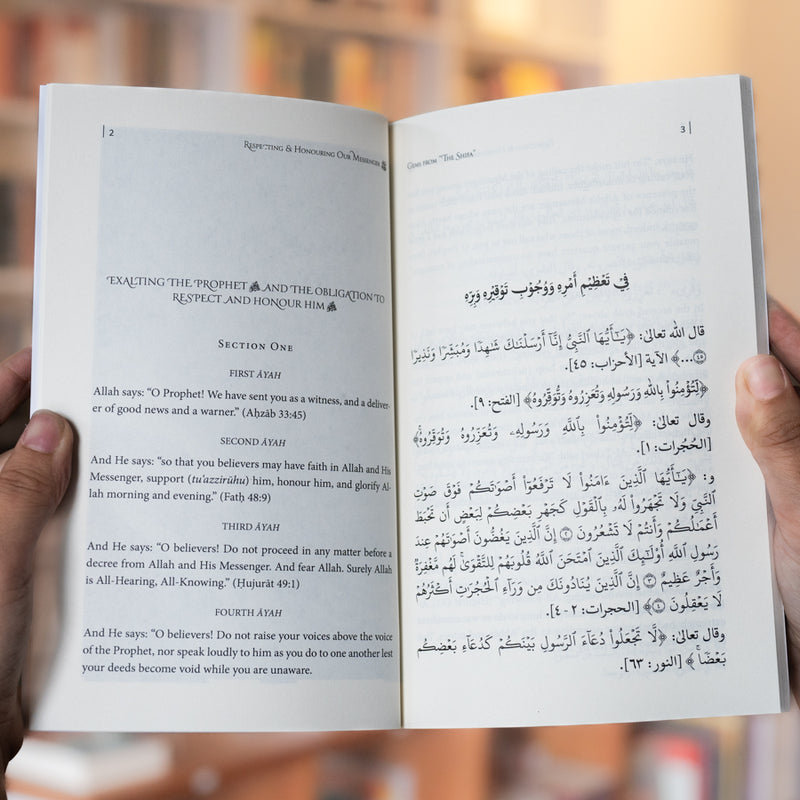 2
RESPECTING & HONOURING OUR MESSENGER ﷺ
EXALTING THE PROPHET ﷺ AND THE OBLIGATION TO
RESPECT AND HONOUR HIM ﷺ
SECTION ONE
FIRST ĀYAH
Allah says: “O Prophet! We have sent you as a witness, and a deliver-
er of good news and a warner.” (Aḥzāb 33:45)
SECOND ĀYAH
And He says: “so that you believers may have faith in Allah and His
Messenger, support (tu'azzirūhu) him, honour him, and glorify Al-
lah morning and evening.” (Fatḥ 48:9)
THIRD ĀYAH
And He says: “O believers! Do not proceed in any matter before a
decree from Allah and His Messenger. And fear Allah. Surely Allah
is All-Hearing, All-Knowing.” (Ḥujurāt 49:1)
FOURTH ĀYAH
And He says: “O believers! Do not raise your voices above the voice
of the Prophet, nor speak loudly to him as you do to one another lest
your deeds become void while you are unaware.
3
GEMS FROM “THE SHIFA”
فِيْ تَعْظِيْمِ أَمْرِهِ وَوُجُوْبِ تَوْقِيْرِهِ وَبِرِّهِ
قال الله تعالىٰ: ﴿يَـٰٓأَيُّهَا ٱلنَّبِيُّ إِنَّآ أَرْسَلْنَـٰكَ شَـٰهِدًا وَمُبَشِّرًا وَنَذِيرًا
٤٥...﴾ الآية [الأحزاب: ٤٥].
﴿لِتُؤْمِنُواْ بِٱللَّهِ وَرَسُولِهِ وَتُعَزِّرُوهُ وَتُوَقِّرُوهُ﴾ [الفتح: ٩].
وقال تعالىٰ: ﴿لِتُؤْمِنُواْ بِٱللَّهِ وَرَسُولِهِۦ وَتُعَزِّرُوهُ وَتُوَقِّرُوهُ﴾
[الحُجُرات: ١].
و: ﴿يَـٰٓأَيُّهَا ٱلَّذِينَ ءَامَنُواْ لَا تَرْفَعُوٓاْ أَصْوَٰتَكُمْ فَوْقَ صَوْتِ
ٱلنَّبِيِّ وَلَا تَجْهَرُواْ لَهُۥ بِٱلْقَوْلِ كَجَهْرِ بَعْضِكُمْ لِبَعْضٍ أَن تَحْبَطَ
أَعْمَـٰلُكُمْ وَأَنتُمْ لَا تَشْعُرُونَ ٢ إِنَّ ٱلَّذِينَ يَغُضُّونَ أَصْوَٰتَهُمْ عِندَ
رَسُولِ ٱللَّهِ أُوْلَـٰٓئِكَ ٱلَّذِينَ ٱمْتَحَنَ ٱللَّهُ قُلُوبَهُمْ لِلتَّقْوَىٰ لَهُم مَّغْفِرَةٌ
وَأَجْرٌ عَظِيمٌ ٣ إِنَّ ٱلَّذِينَ يُنَادُونَكَ مِن وَرَآءِ ٱلْحُجُرَٰتِ أَكْثَرُهُمْ
لَا يَعْقِلُونَ ٤﴾ [الحجرات: ٢-٤].
وقال تعالىٰ: ﴿لَّا تَجْعَلُواْ دُعَآءَ ٱلرَّسُولِ بَيْنَكُمْ كَدُعَآءِ بَعْضِكُم
بَعْضًا﴾ [النور: ٦٣].